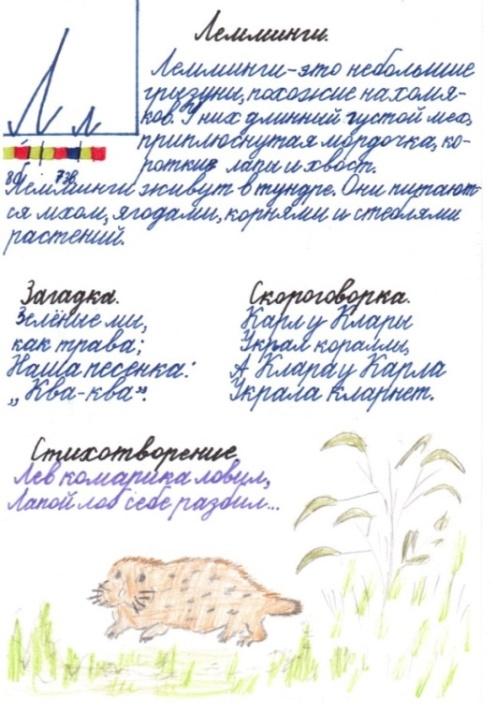 Лемминги.
Лемминги-это небольшие
грызуны, похожие на хомя-
ков. У них длинный густой мех,
приплюснутая мордочка, ко-
роткие лапы и хвост.
Лемминги живут в тундре. Они питают-
ся мхом, ягодами, корнями и стеблями
растений.
Загадка.
Зелёные мы,
как трава;
Наша песенка:
„Ква-ква”.
Скороговорка.
Карл у Клары
Украл кораллы,
А Клара у Карла
Украла кларнет.
Стихотворение.
Лев комарика ловил,
Лапой лоб себе разбил...